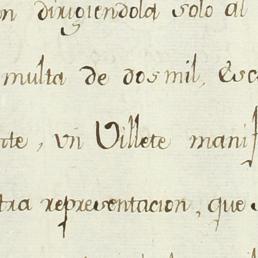 n dirigiendola solo al
multa de dos mil, Esc
te, vn Villete manif
tra representacion, que